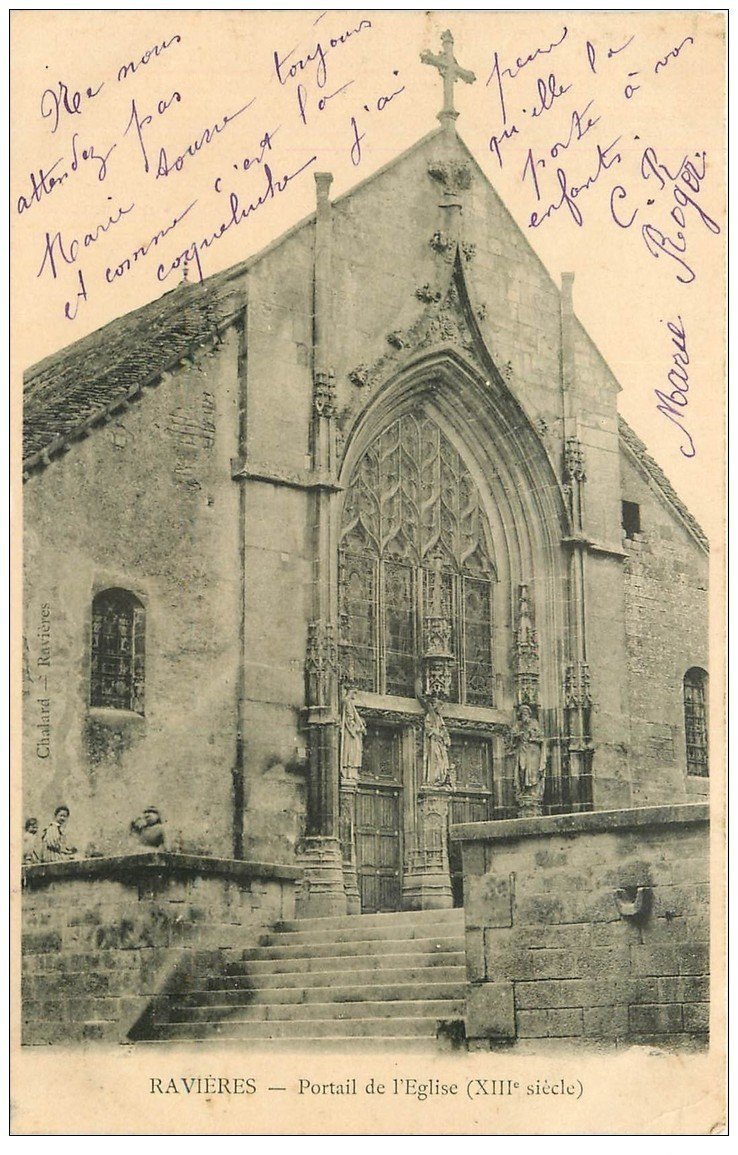 Ne nous
attendez pas
Marie tousse toujours
et comme c'est la
coqueluche j'ai
peur
qu'elle la
porte à vos
enfants.
C. R
Marie Roger
Chalard — Ravières
RAVIÈRES — Portail de l'Eglise (XIIIe siècle)